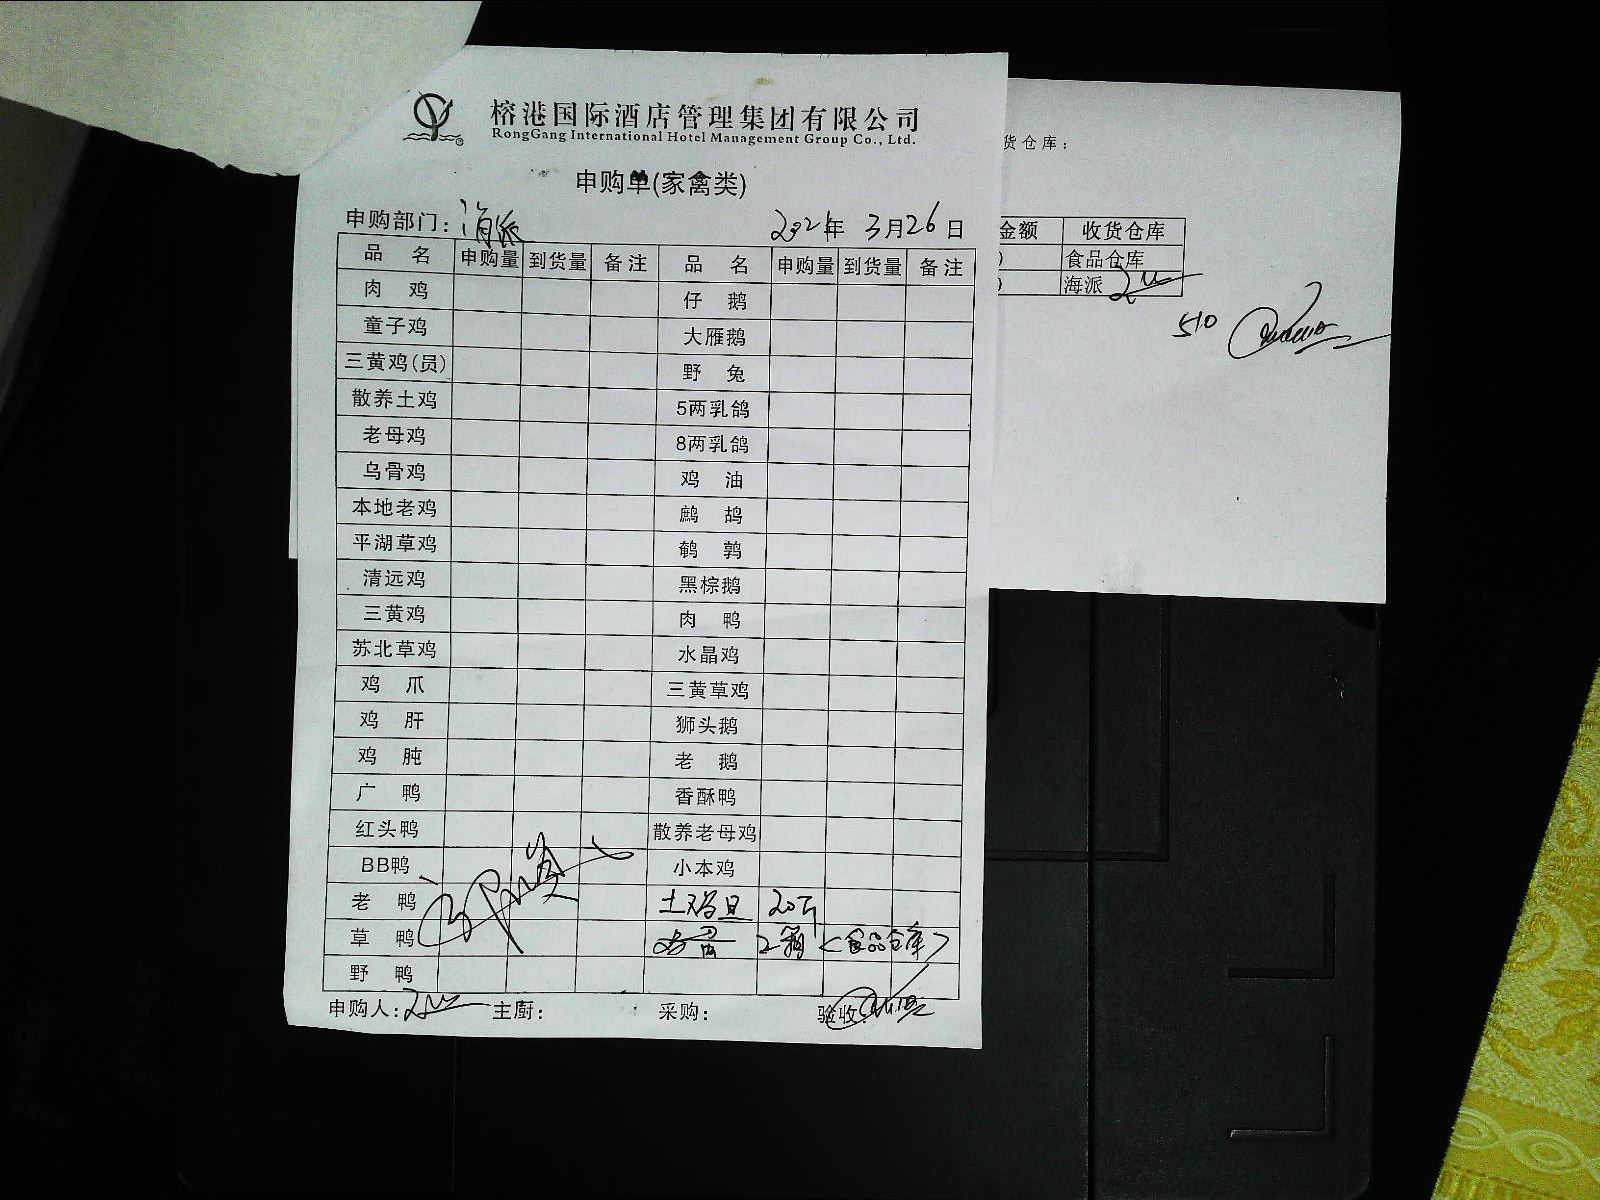 榕港国际酒店管理集团有限公司
RongGang International Hotel Management Group Co., Ltd.
申购单(家禽类)
申购部门：海派 2021年 3月26日
品 名 申购量 到货量 备注 品 名 申购量 到货量 备注
肉 鸡 仔 鹅
童子鸡 大雁鹅
三黄鸡(员) 野 兔
散养土鸡 5两乳鸽
老母鸡 8两乳鸽
乌骨鸡 鸡 油
本地老鸡 鹧 鸪
平湖草鸡 鹌 鹑
清远鸡 黑棕鹅
三黄鸡 肉 鸭
苏北草鸡 水晶鸡
鸡 爪 三黄草鸡
鸡 肝 狮头鹅
鸡 肫 老 鹅
广 鸭 香酥鸭
红头鸭 散养老母鸡
BB鸭 小本鸡
老 鸭 土鸡旦 20斤
草 鸭 鸡蛋 2箱 <食品仓库>
野 鸭
申购人： 主厨： 采购： 验收：
货仓库：
金额 收货仓库
) 食品仓库
) 海派
510